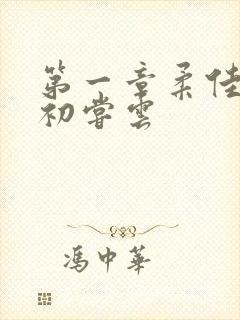 第一章柔佳
初尝雲
馮中華